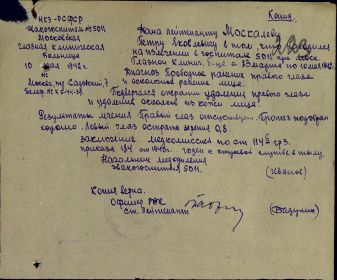 Копия.
НКЗ-РСФСР
Эвакогоспиталь № 5011
Московская
Глазная клиническая
больница
10 мая 1942 г.
Москва, пр. Садовский, 7
Телеф. № К 5-44-39.
Дана лейтенанту Москалеву
Петру Яковлевичу в том, что находился
на излечении в госпитале 5011 при Моск.
Глазной Клинич. б-це с 13 марта по 10 мая 1942.
Диагноз: Проводное ранение правого глаза
и осколков ранение лица.
Подвергался операции удаления правого глаза
и удаления осколков из кожи лица.
Результаты лечения Правый глаз отсутствует. Протез подобран
хорошо. Левый глаз острота зрения 0,8
заключение медкомиссии по ст 114 гр 3
приказа 184 от 1940 г. годен к строевой службе в тылу.
Начальник медотделения
эвакогоспиталя 5011. (Иванов)
Копия верна.
Офицер
Ст. лейтенант